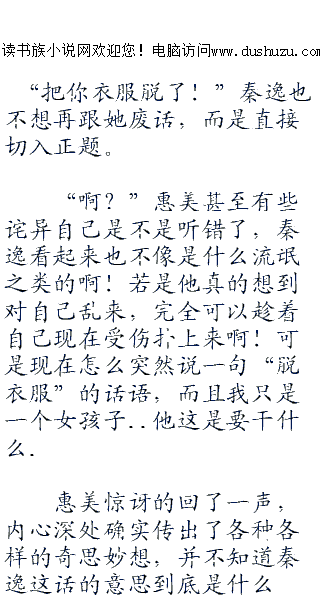 读书族小说网欢迎您！电脑访问www.dushuzu.com
“把你衣服脱了！”秦逸也
不想再跟她废话，而是直接
切入正题。
“啊？”惠美甚至有些
诧异自己是不是听错了，秦
逸看起来也不像是什么流氓
之类的啊！若是他真的想到
对自己乱来，完全可以趁着
自己现在受伤扑上来啊！可
是现在怎么突然说一句“脱
衣服”的话语，而且我只是
一个女孩子..他这是要干什
么.
惠美惊讶的回了一声，
内心深处确实传出了各种各
样的奇思妙想，并不知道秦
逸这话的意思到底是什么